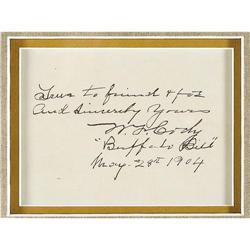 True to friend & foe
And Sincerely Yours
W. F. Cody
"Buffalo Bill"
May- 28th 1904